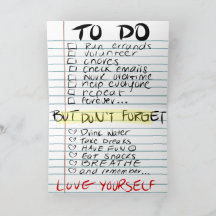 TO DO
Run errands
volunteer
chores
check emails
work overtime
help everyone
repeat
forever...
BUT DON'T FORGET
Drink water
Take breaks
HAVE FUN
Eat snacks
BREATHE
and remember...
LOVE YOURSELF